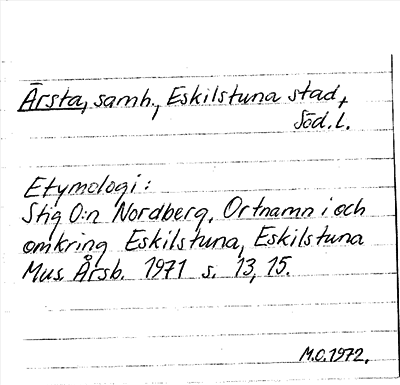 Årsta, samh., Eskilstuna stad,
Söd. l.
Etymologi:
Stig O:n Nordberg, Ortnamn i och
omkring Eskilstuna, Eskilstuna
Mus. Årsb. 1971 s. 13, 15.
M.O. 1972.